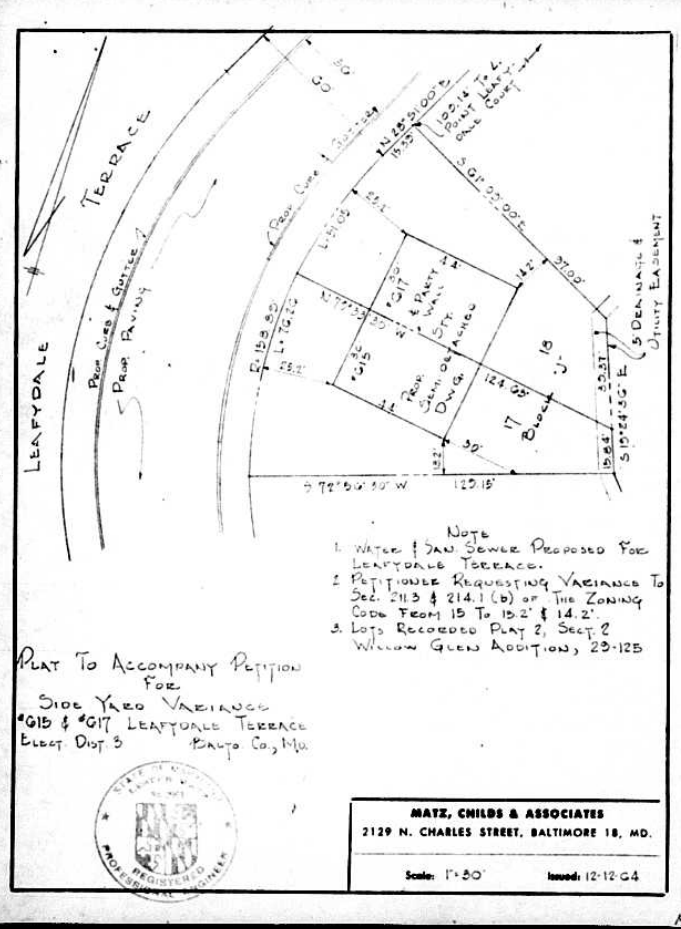 60'
30'
LEAFYDALE TERRACE
PROP. CURB & GUTTER
PROP. PAVING
PROP. CURB & GUTTER
N 28°51'00" E
15.33'
100.14' TO &
POINT LEAFY-
DALE COURT
S 61°09'00" E
97.00'
5' DRAINAGE &
UTILITY EASEMENT
L=51.05
25.2'
44'
14.2'
30'
#617
& PARTY
WALL
2 STY.
PROP.
SEMI-DETACHED
DWG.
30'
#615
25.2'
44'
R=158.85'
L=76.26
124.65'
18
17
BLOCK "J"
39.37'
15.84'
S 15°24'36" E
15.2'
30'
S 72°56'30" W 129.15'
NOTE
1. WATER & SAN. SEWER PROPOSED FOR
LEAFYDALE TERRACE.
2. PETITIONER REQUESTING VARIANCE TO
SEC. 211.3 & 214.1 (b) OF THE ZONING
CODE FROM 15 TO 15.2' & 14.2'.
3. LOTS RECORDED PLAT 2, SECT. 2
WILLOW GLEN ADDITION, 29-125
PLAT TO ACCOMPANY PETITION
FOR
SIDE YARD VARIANCE
#615 & #617 LEAFYDALE TERRACE
ELECT. DIST. 3 BALTO. CO., MD.
STATE OF MARYLAND
REGISTERED
PROFESSIONAL ENGINEER
MATZ, CHILDS & ASSOCIATES
2129 N. CHARLES STREET, BALTIMORE 18, MD.
Scale: 1"=30' Issued: 12-12-64